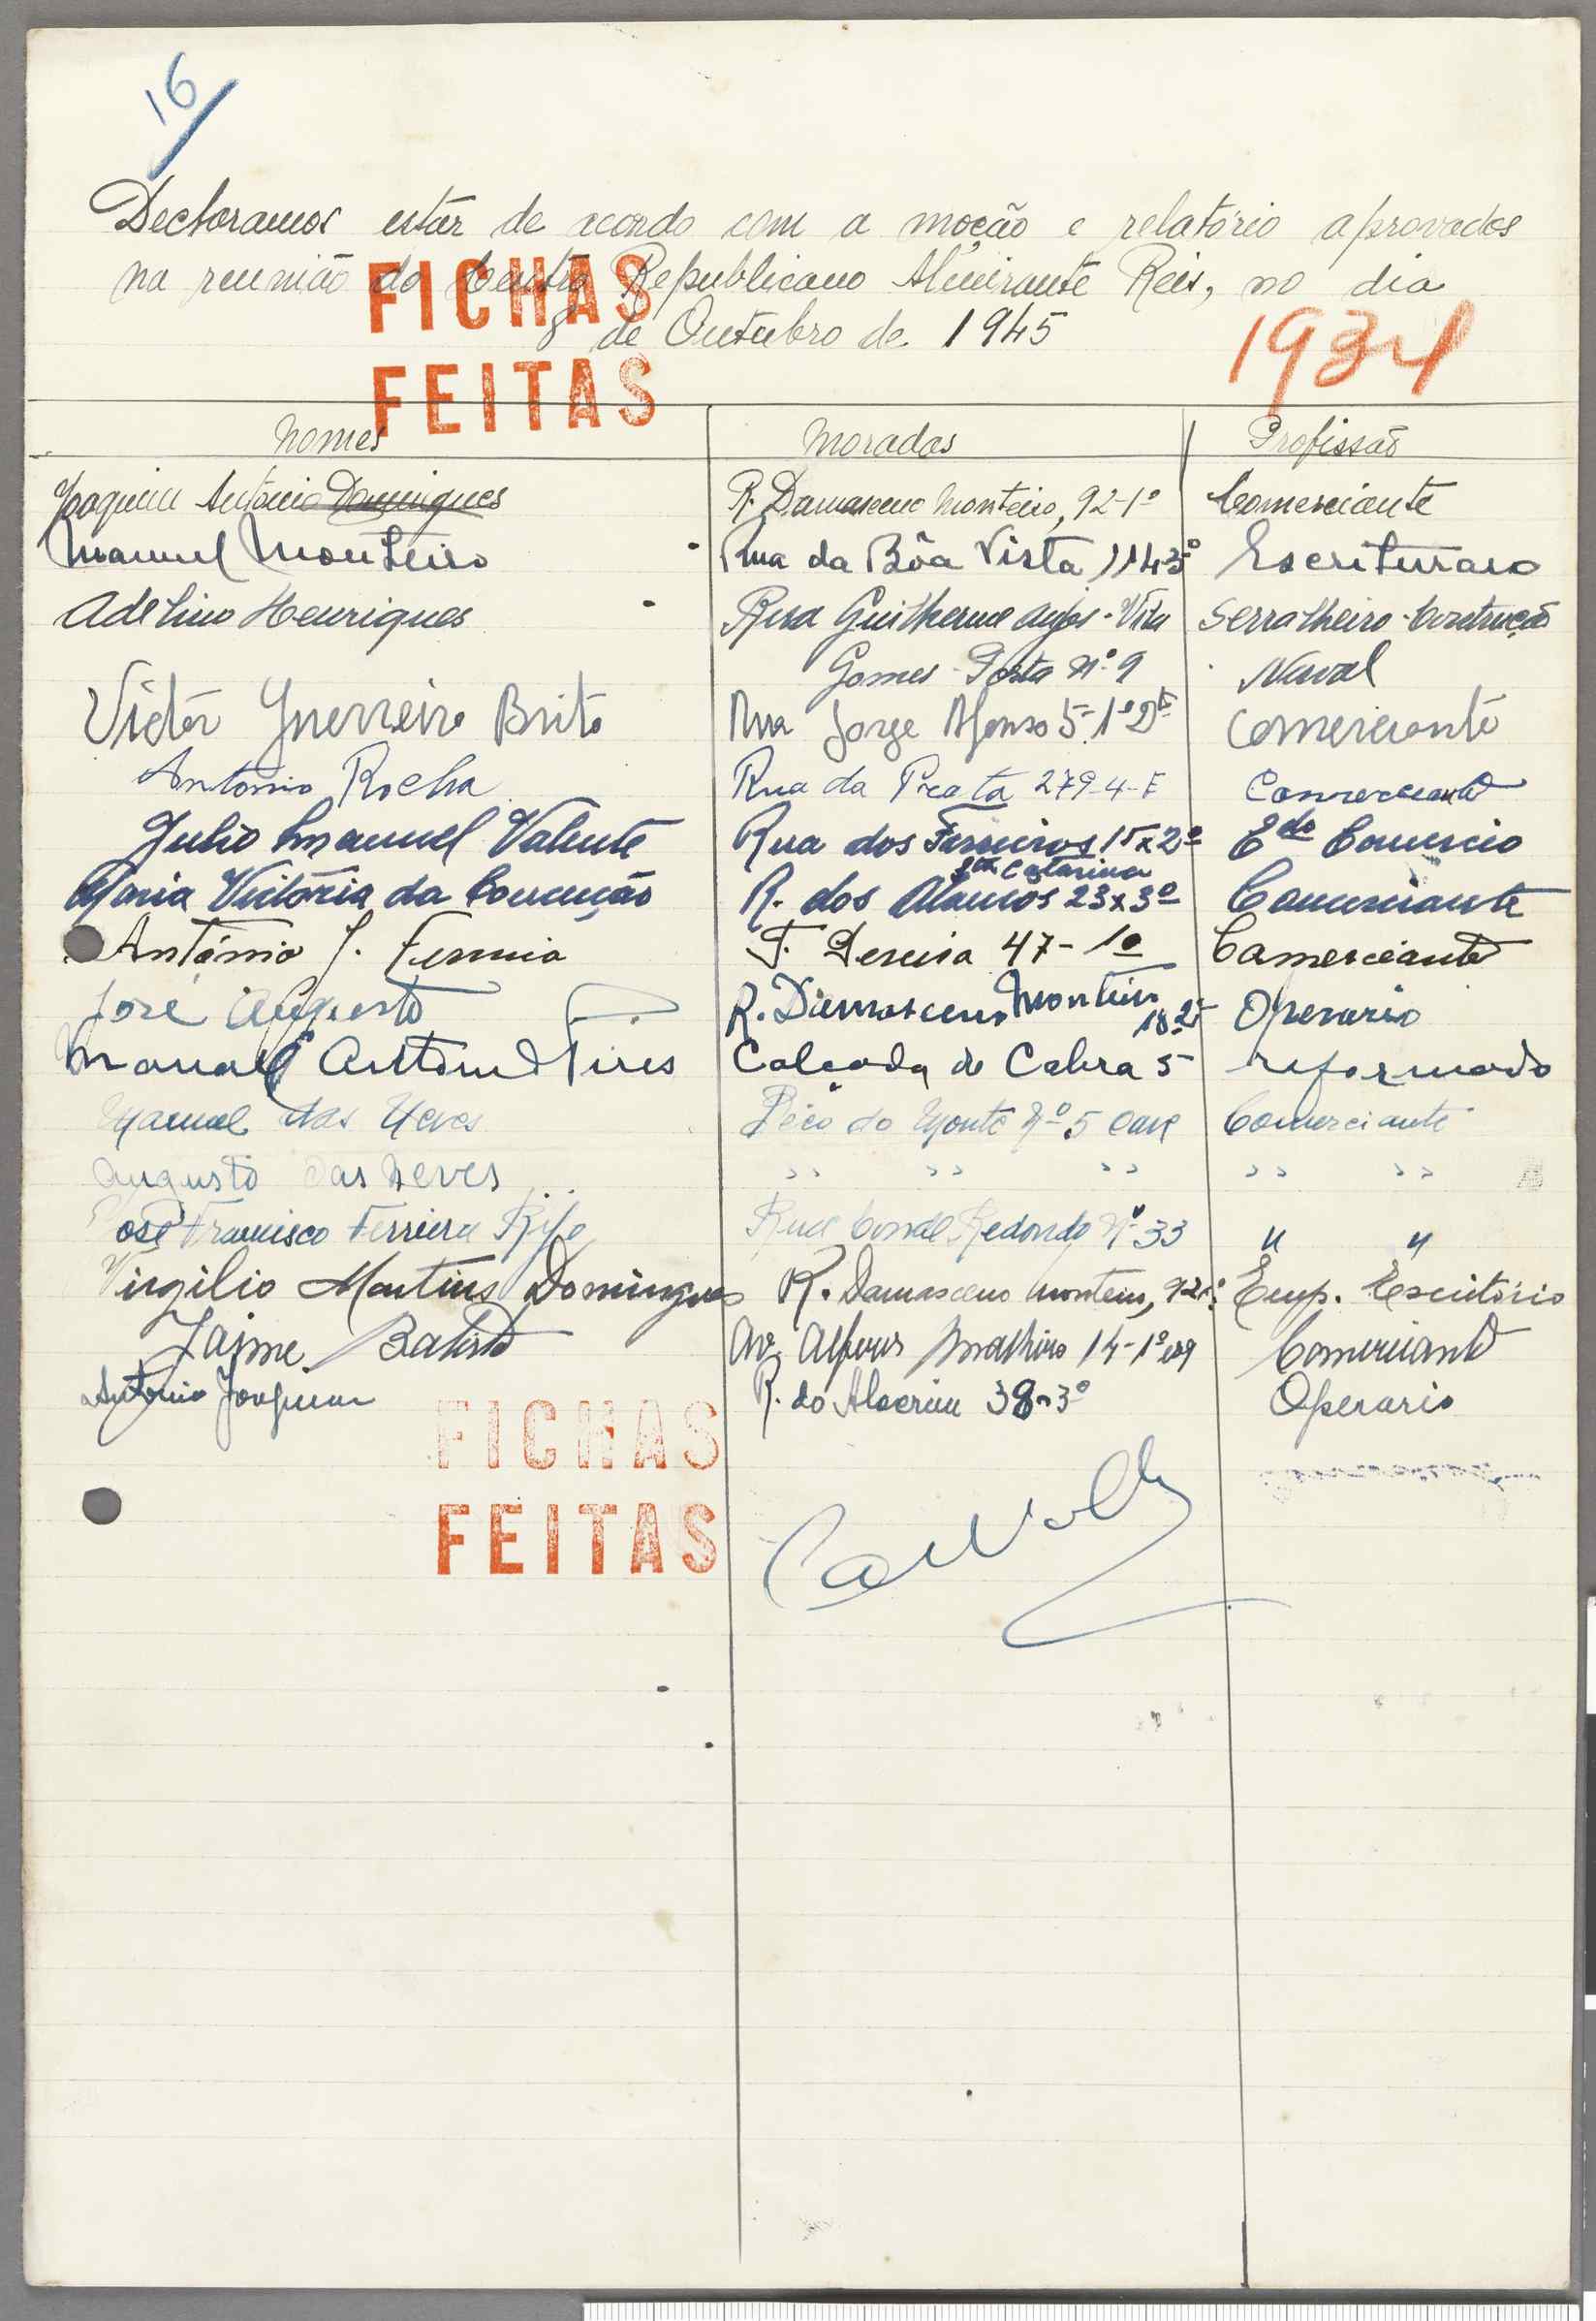 16
Declaramos estár de acordo com a moção e relatório aprovados
na reunião do Centro Republicano Almirante Reis, no dia
8 de Outubro de 1945
FICHAS
FEITAS
1934
Nomes Moradas Profissão
Joaquim António Domingues R. Damasceno Monteiro, 92-1º Comerciante
Manuel Monteiro Rua da Bôa Vista 114-3º Escriturario
Adelino Henriques Rua Guilherme Anjos - Vila Serralheiro - Construção
Gomes - Porta Nº 9 Naval
Victór Guerreiro Brito Rua Jorge Afonso 5-1º Dt Comerciante
Antonio Rocha Rua da Prata 279-4-E Comerciante
Julio Manuel Valente Rua dos Ferreiros 15 x 2º Edo Comercio
Sta Catarina
Maria Victória da Conceição R. dos 23 x 3º Comerciante
António J. T. Pereira 47-1º Comerciante
José Augusto R. Damasceno Monteiro Operario
Manuel Antonio Pires Calçada do Cabra 5 reformado
Manuel das Neves Bêco do Monte Nº 5 cave Comerciante
Augusto das Neves " " " " "
José Francisco Ferreira Rijo Rua Conde Redondo Nº 33 " "
Virgilio Martins Domingues R. Damasceno Monteiro, 92 1º Emp. Escritório
Jaime Batista Av. Alferes Malheiro 14-1º esq Comerciante
Antonio Joaquim R. do Alecrim 38-3º Operario
FICHAS
FEITAS